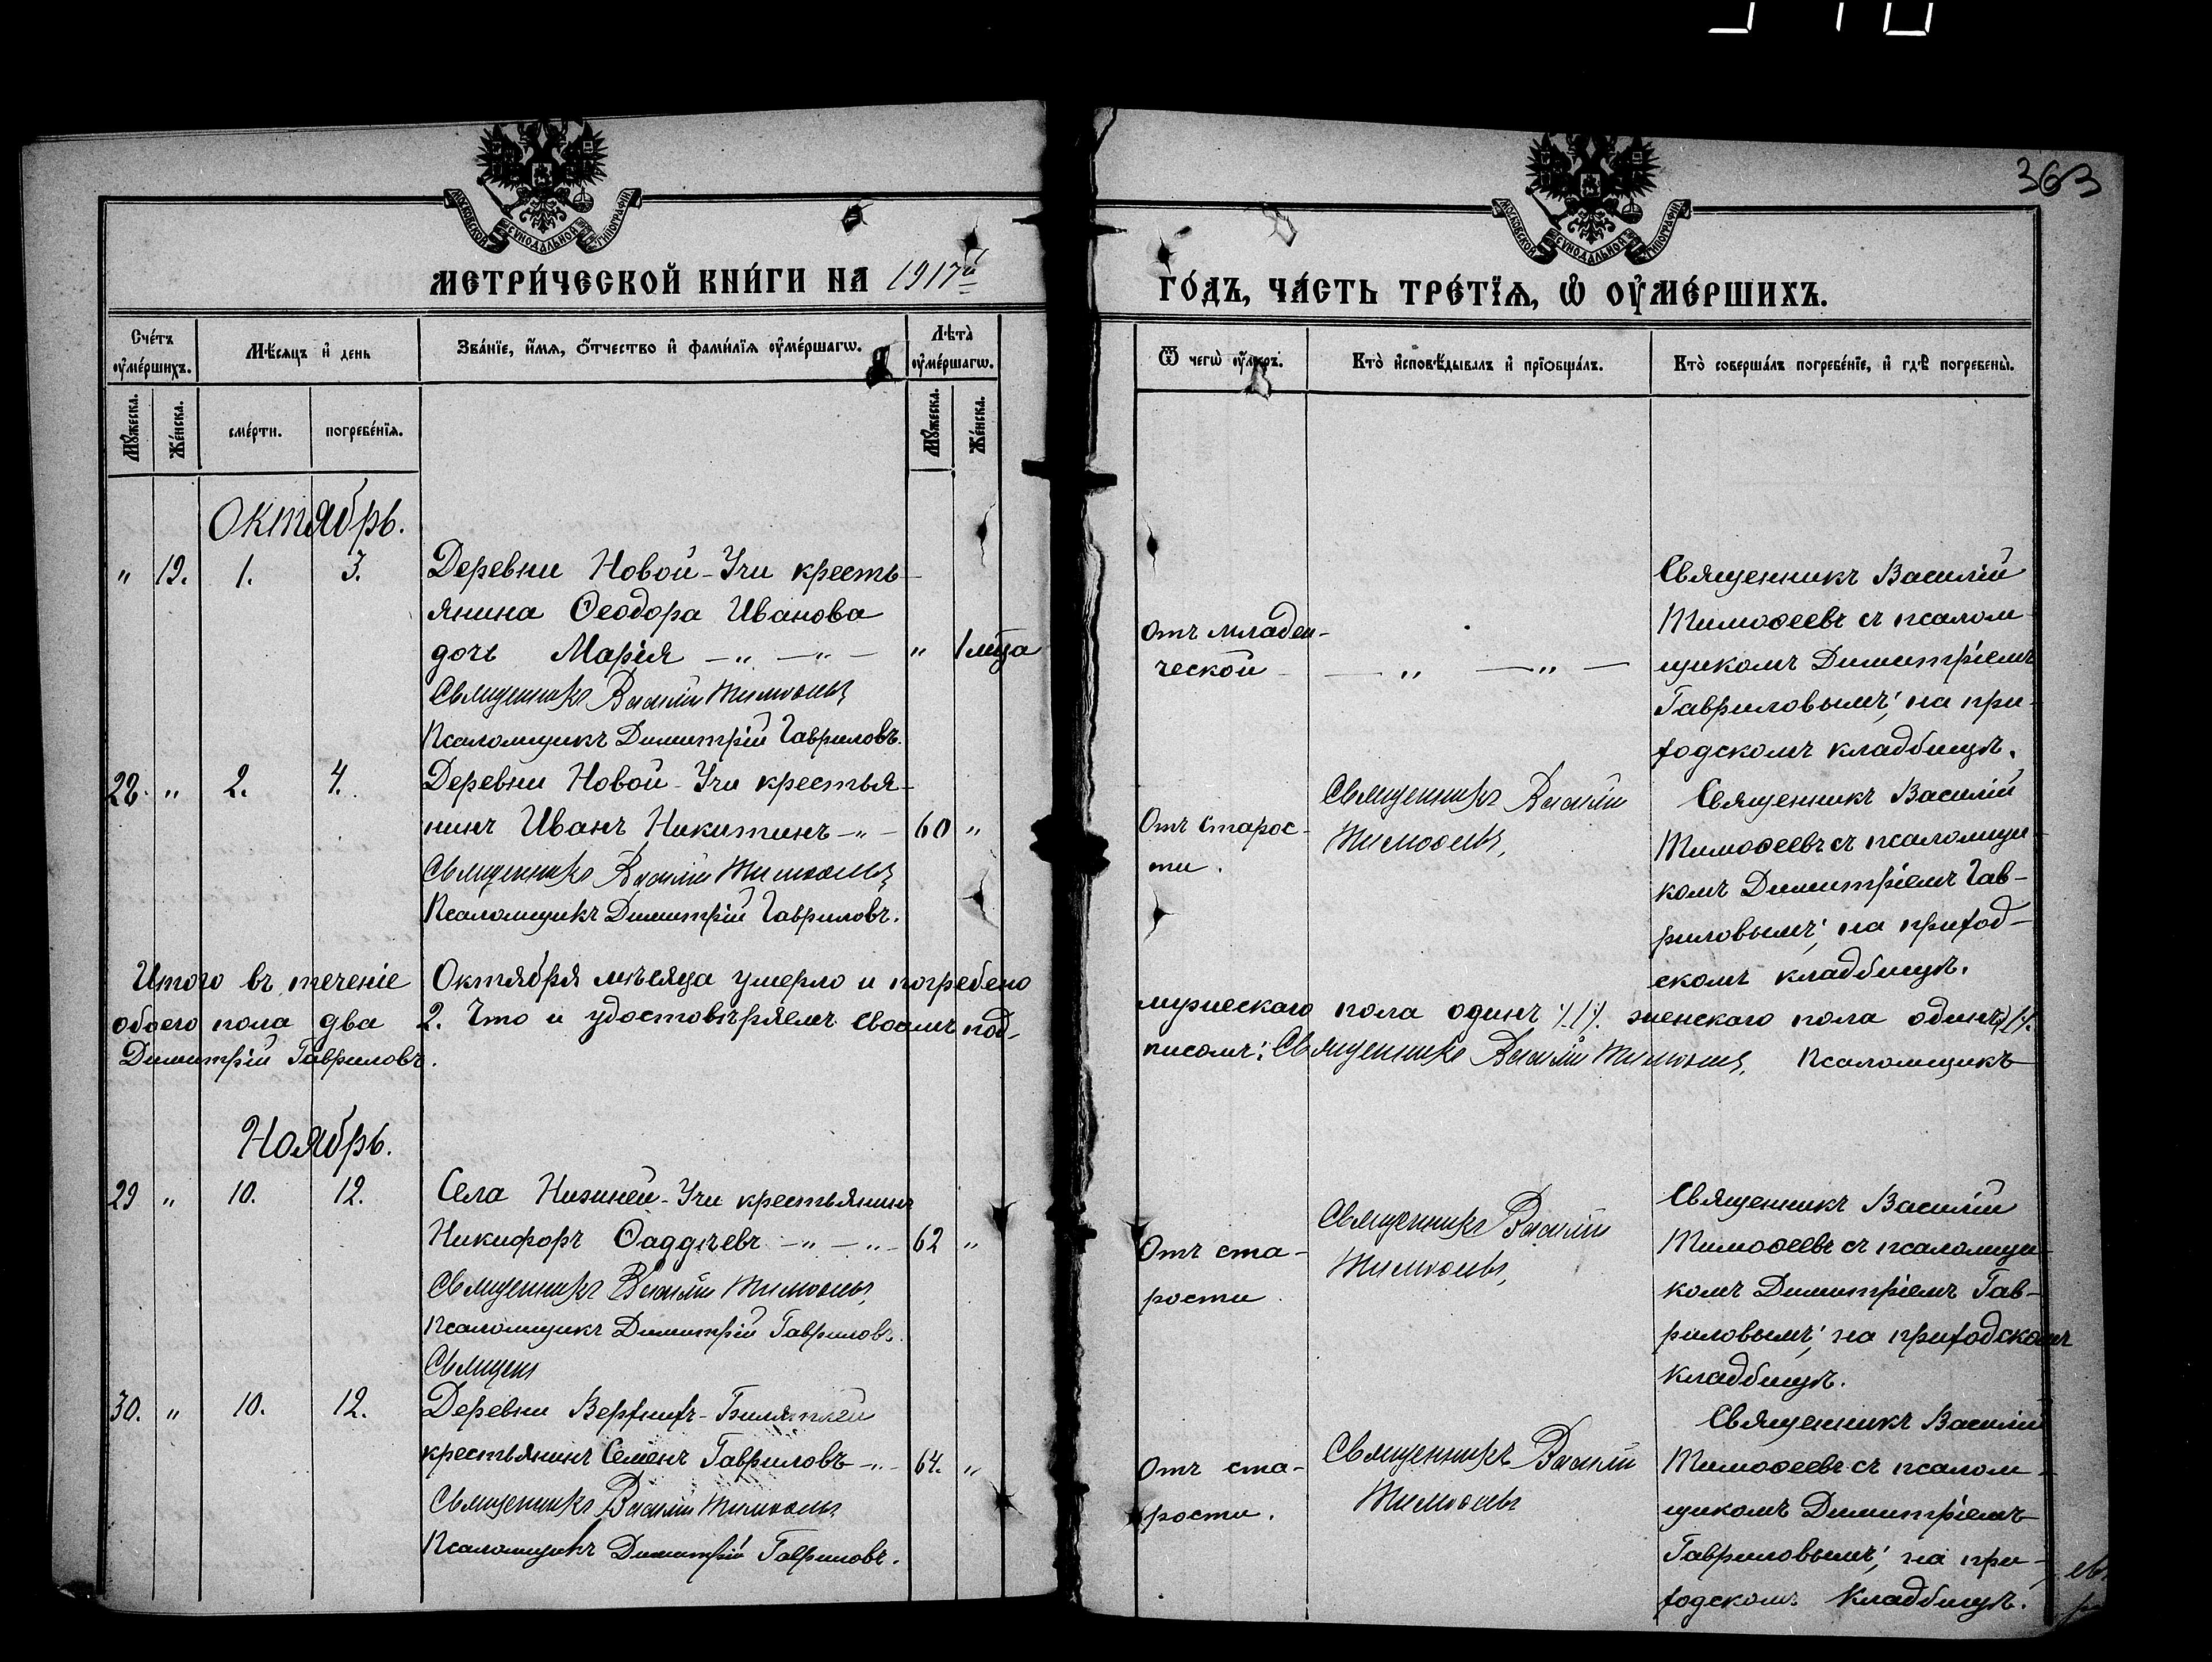 363
МОСКОВСКОЙ СѴНОДАЛЬНОЙ ТИПОГРАФІИ
МОСКОВСКОЙ СѴНОДАЛЬНОЙ ТИПОГРАФІИ
МЕТРИ́ЧЕСКОЙ КНИ́ГИ НА 1917й
ГО́ДЪ, ЧА́СТЬ ТРЕ́ТЇѦ, Ѡ҆ ОУ҆МЕ́РШИХЪ.
Сче́тъ оу҆ме́ршихъ.
Мѣ́сяцъ и҆ день
Зва́нїе, и҆́мя, ѻ҆́тчество и҆ фами́лїя оу҆ме́ршагѡ.
Лѣта̀ оу҆ме́ршагѡ.
Ѿ чегѡ̀ оу҆́меръ.
Кто̀ и҆сповѣ́дывалъ и҆ прїѻбща́лъ.
Кто̀ соверша́лъ погребе́нїе, и҆ гдѣ̀ погребены̀.
Мꙋ́жеска.
Же́нска.
сме́рти.
погребе́нїя.
Мꙋ́жеска.
Же́нска.
Октябрь.
" 19. 1. 3. Деревни Новой-Учи кресть-
янина Ѳеодора Иванова
дочь Марія —"—"— " 1 мца
Священникъ Василій Тимоѳеевъ
Псаломщикъ Димитрій Гавриловъ.
Отъ младен-
ческой
— " —"—
Священникъ Василій
Тимоѳеевъ съ псалом-
щикомъ Димитріемъ
Гавриловымъ; на при-
ходскомъ кладбищѣ.
28. " 2. 4. Деревни Новой-Учи крестья-
нинъ Иванъ Никитинъ —"— 60 "
Священникъ Василій Тимоѳеевъ
Псаломщикъ Димитрій Гавриловъ.
Отъ старос-
ти.
Священникъ Василій
Тимоѳеевъ,
Священникъ Василій
Тимоѳеевъ съ псаломщи-
комъ Димитріемъ Гав-
риловымъ; на приход-
скомъ кладбищѣ.
Итого въ теченіе Октября мѣсяца умерло и погребено
мужескаго пола одинъ /1/. женскаго пола одинъ /1/.
обоего пола два 2. Что и удостовѣряемъ своимъ под-
писомъ: Священникъ Василій Тимоѳеевъ, Псаломщикъ
Димитрій Гавриловъ.
Ноябрь.
29 " 10. 12. Села Нижней-Учи крестьянинъ
Никифоръ Ѳаддѣевъ —"—"— 62 "
Священникъ Василій Тимоѳеевъ,
Псаломщикъ Димитрій Гавриловъ.
Священ
Отъ ста-
рости
Священникъ Василій
Тимоѳеевъ,
Священникъ Василій
Тимоѳеевъ съ псаломщи-
комъ Димитріемъ Гав-
риловымъ; на приходскомъ
кладбищѣ.
30. " 10. 12. Деревни Верхнихъ-Билятлей
крестьянинъ Семенъ Гавриловъ —"— 64. "
Священникъ Василій Тимоѳеевъ
Псаломщикъ Димитрій Гавриловъ.
Отъ ста-
рости.
Священникъ Василій
Тимоѳеевъ
Священникъ Василій
Тимоѳеевъ съ псалом-
щикомъ Димитріемъ
Гавриловымъ; на при-
ходскомъ Кладбищѣ.